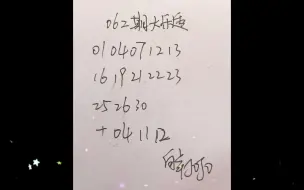 062期大乐透
0104071213
1619212223
252630
+041112